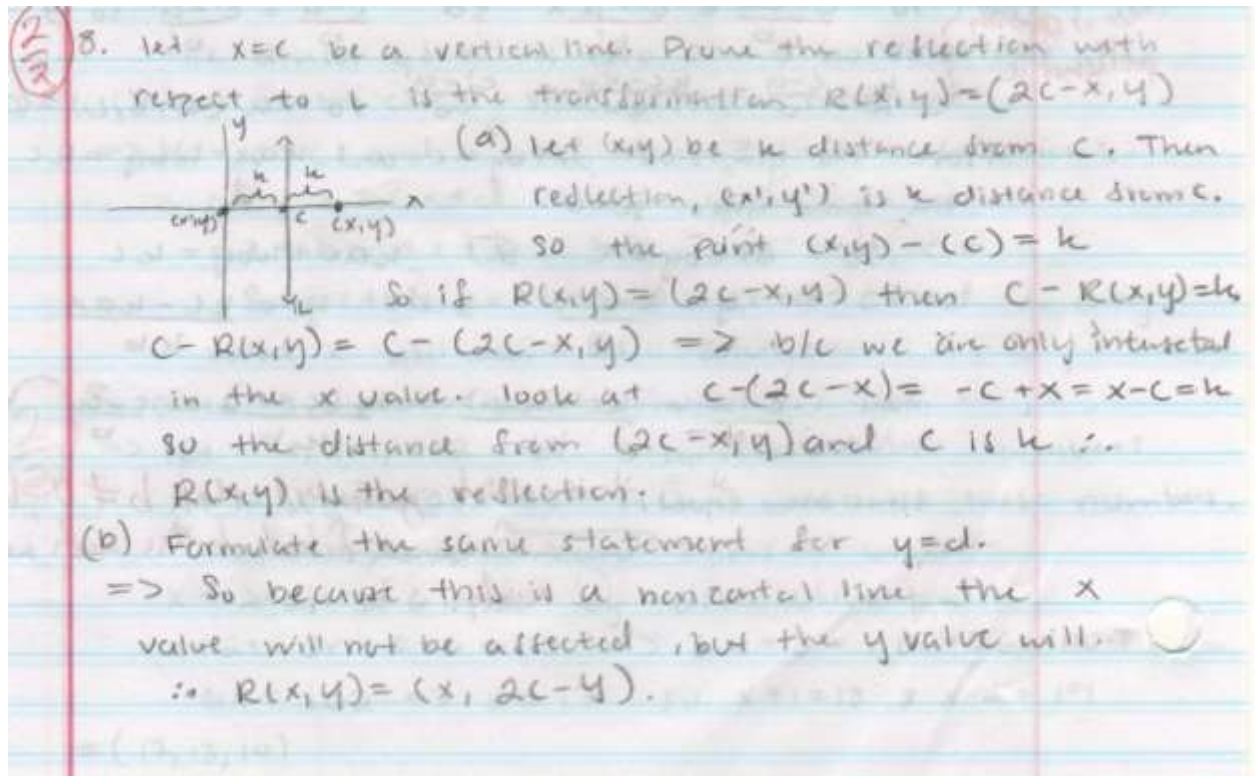 2/2
8. let x=c be a vertical line. Prove the reflection with
respect to L is the transformation R(x,y)=(2c-x,y)
y
(a) let (x,y) be k distance from c. Then
k k
x
reflection, (x',y') is k distance from c.
(x',y') c (x,y)
so the point (x,y) - (c) = k
L
So if R(x,y) = (2c-x,y) then C - R(x,y)=k
C - R(x,y) = C - (2c-x,y) => b/c we are only
in the x value. look at c-(2c-x)= -c+x = x-c=k
so the distance from (2c-x,y) and c is k ∴
R(x,y) is the reflection.
(b) Formulate the same statement for y=d.
=> So because this is a line the x
value will not be affected, but the y value will.
∴ R(x,y) = (x, 2c-y).